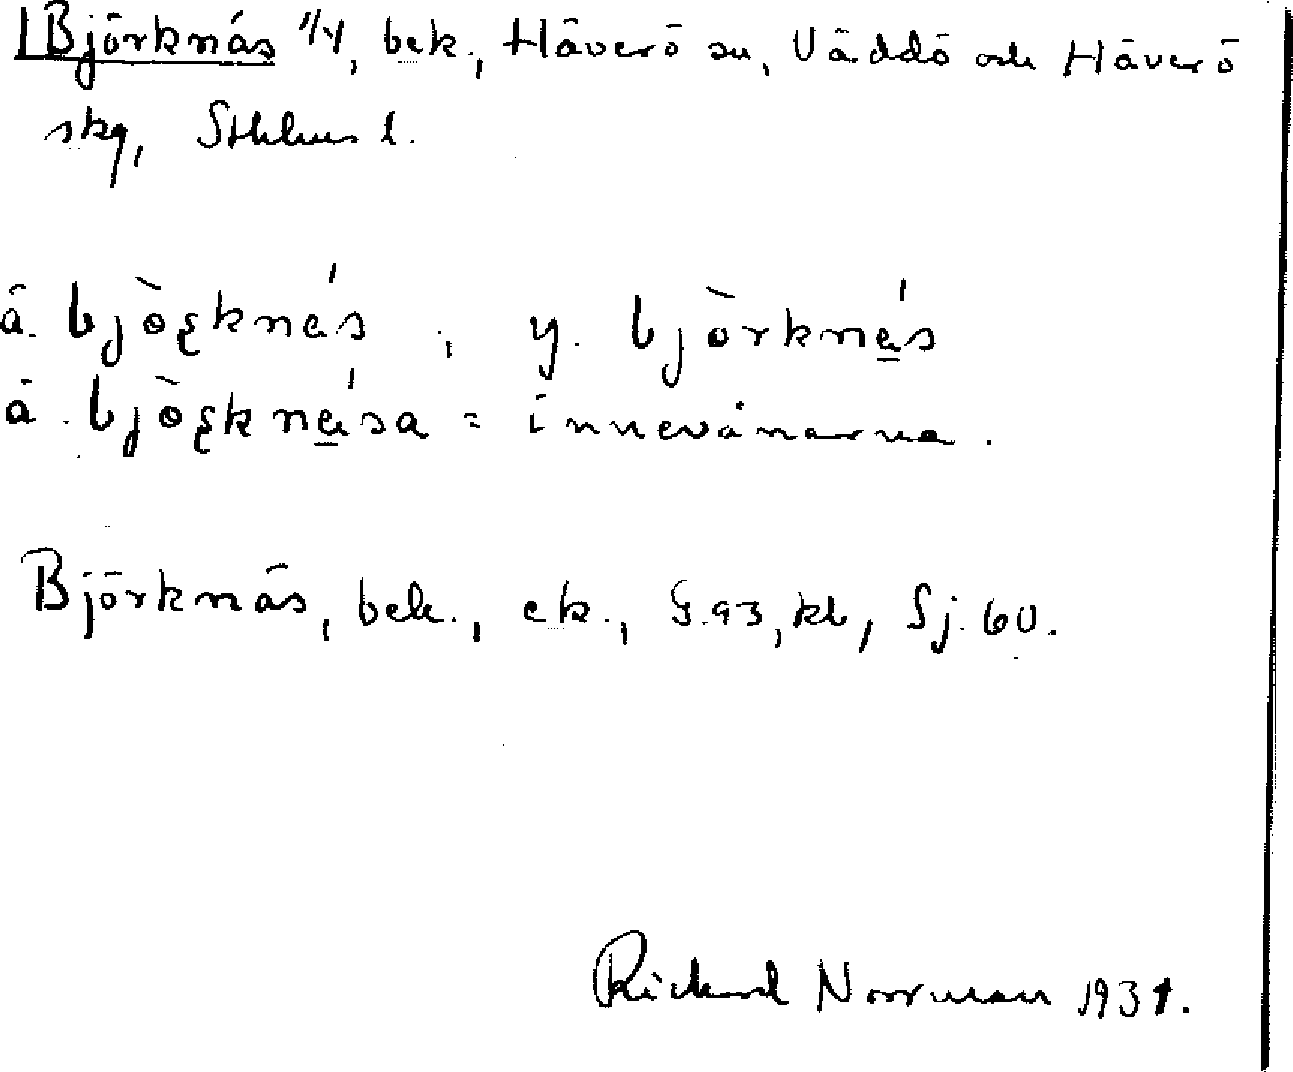 Björknäs 1/4, bek., Häverö sn, Väddö och Häverö
skg, Sthlms l.
ä. bjò̱ʂknés, y. bjòrknä́s
ä. bjòʂknä́sa = innevånarna.
Björknäs, bek., ek., G.93, kb, Sj. 60.
Rickard Norrman 1931.